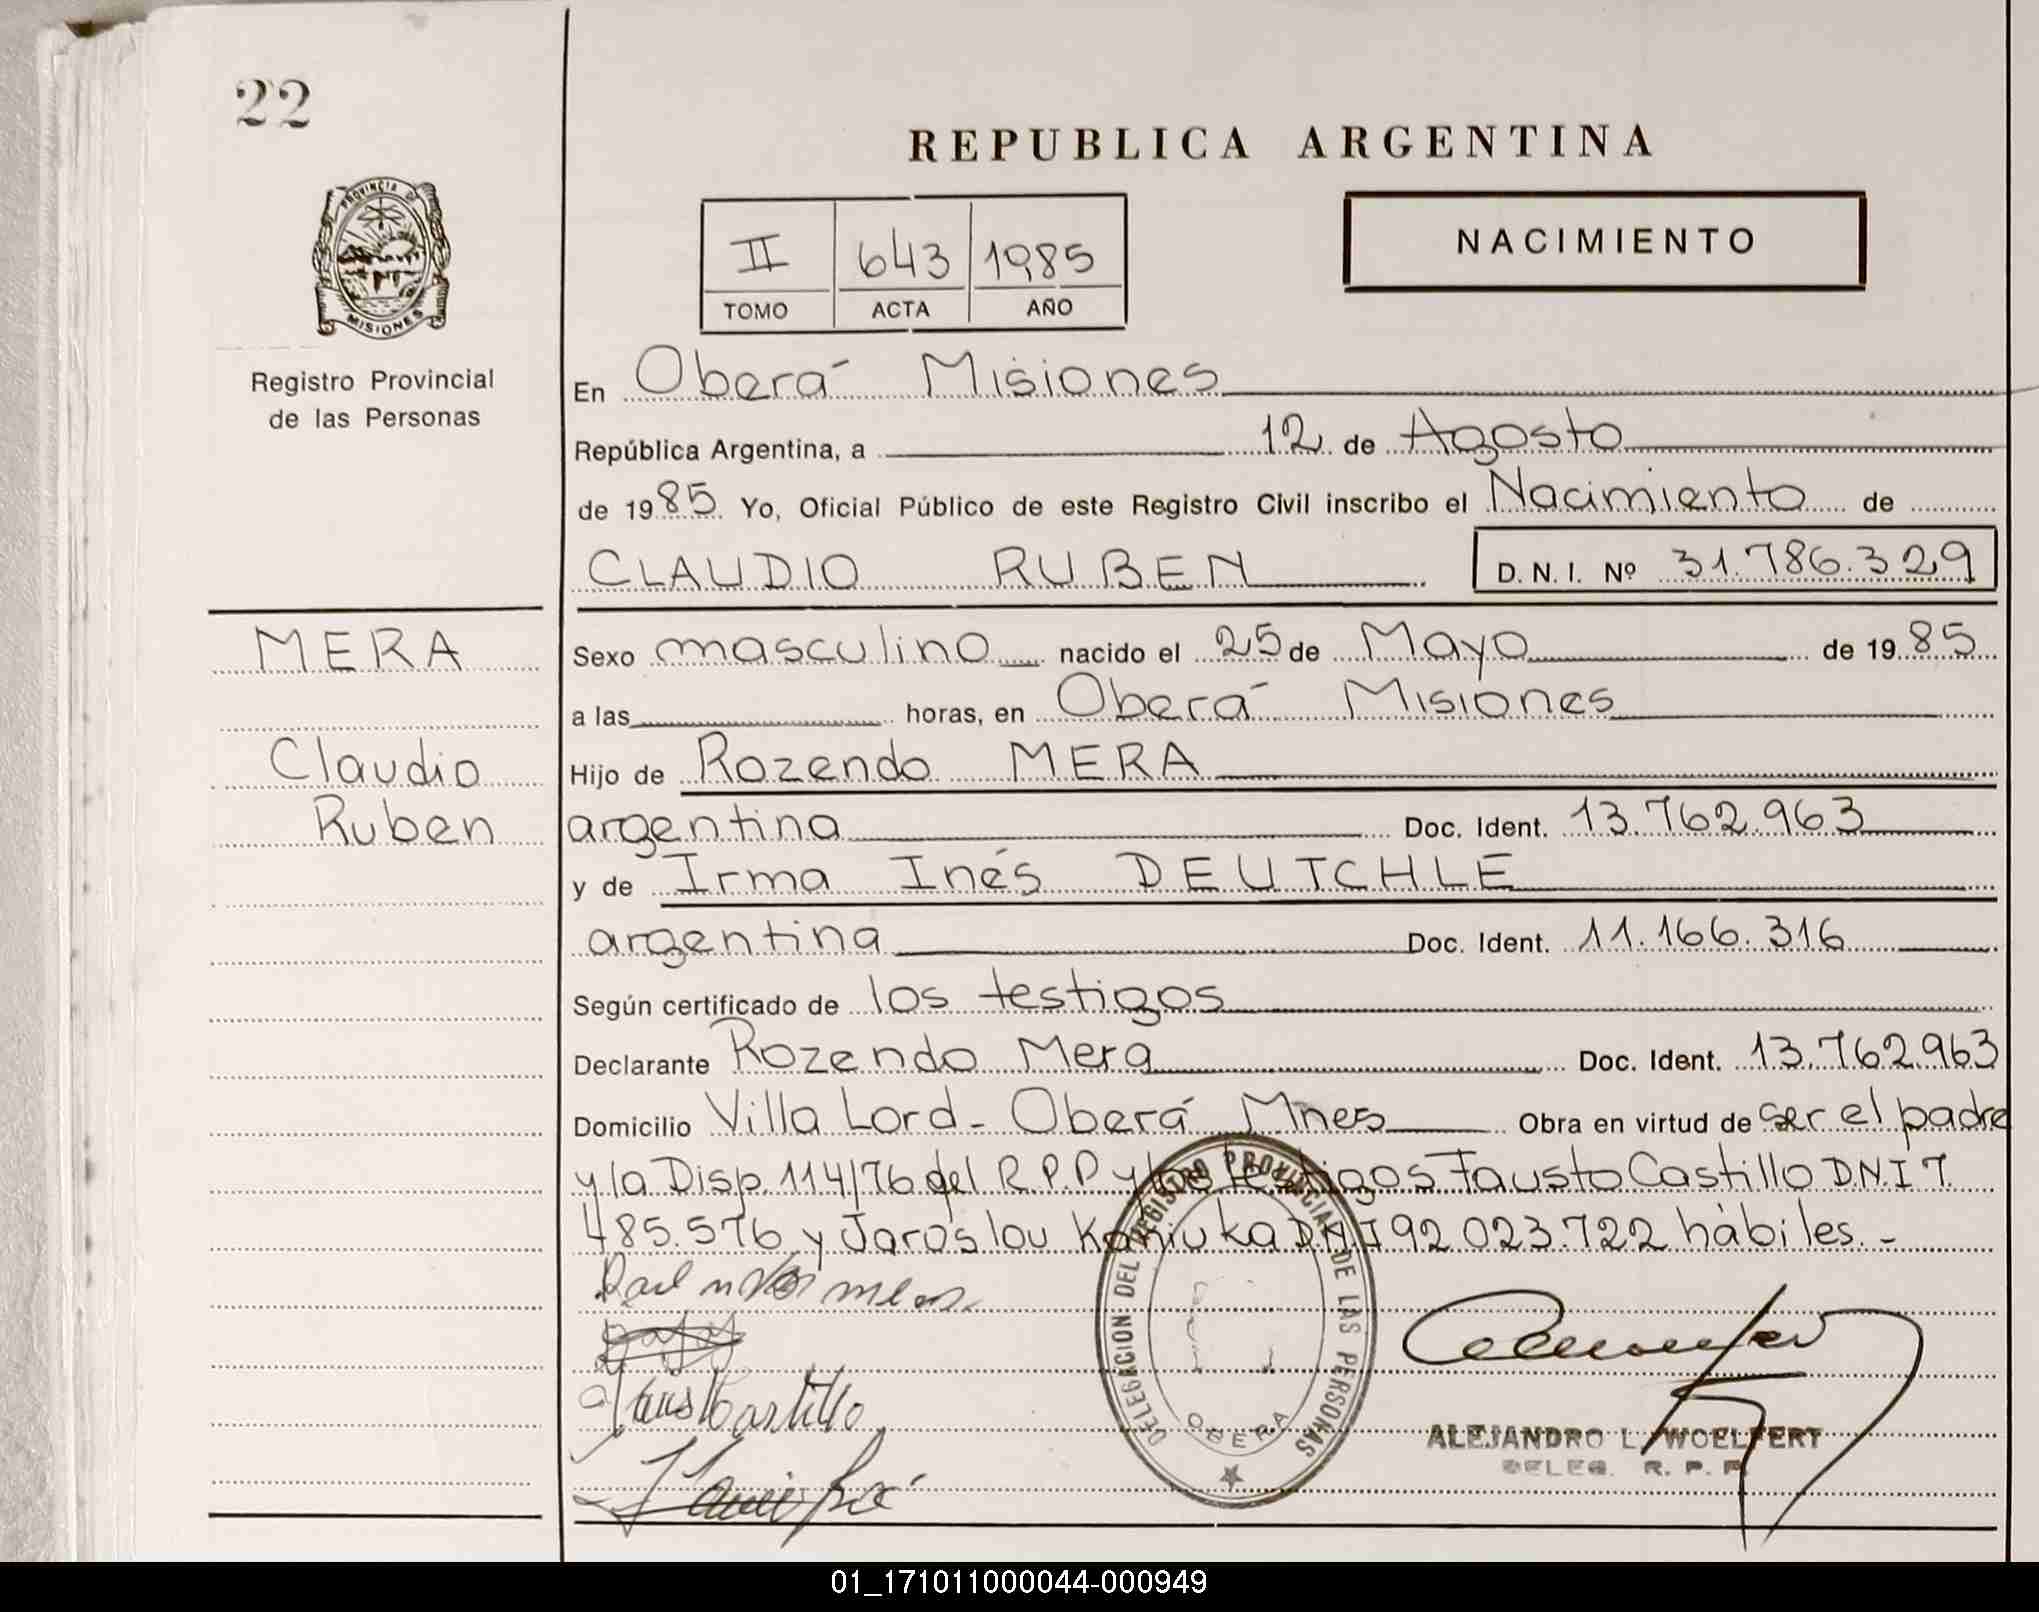 22
REPUBLICA ARGENTINA
II 643 1985
TOMO ACTA AÑO
NACIMIENTO
PROVINCIA DE
MISIONES
Registro Provincial
de las Personas
En Oberá Misiones
República Argentina, a 12 de Agosto
de 1985 Yo, Oficial Público de este Registro Civil inscribo el Nacimiento de
CLAUDIO RUBEN D. N. I. Nº 31.786.329
MERA
Claudio
Ruben
Sexo masculino nacido el 25 de Mayo de 1985
a las horas, en Oberá Misiones
Hijo de Rozendo MERA
argentina Doc. Ident. 13.762.963
y de Irma Inés DEUTCHLE
argentina Doc. Ident. 11.166.316
Según certificado de los testigos
Declarante Rozendo Mera Doc. Ident. 13.762.963
Domicilio Villa Lord - Oberá Mnes Obra en virtud de ser el padre
y la Disp. 114/76 del R.P.P y los testigos Fausto Castillo D.N.I 7.
485.576 y Jaroslou Kaniuka D.N.I 92.023.722 hábiles. -
DELEGACION DEL REGISTRO PROVINCIAL DE LAS PERSONAS
OBERA
Castillo
ALEJANDRO L. WOELFERT
DELEG. R. P. P.
01_171011000044-000949